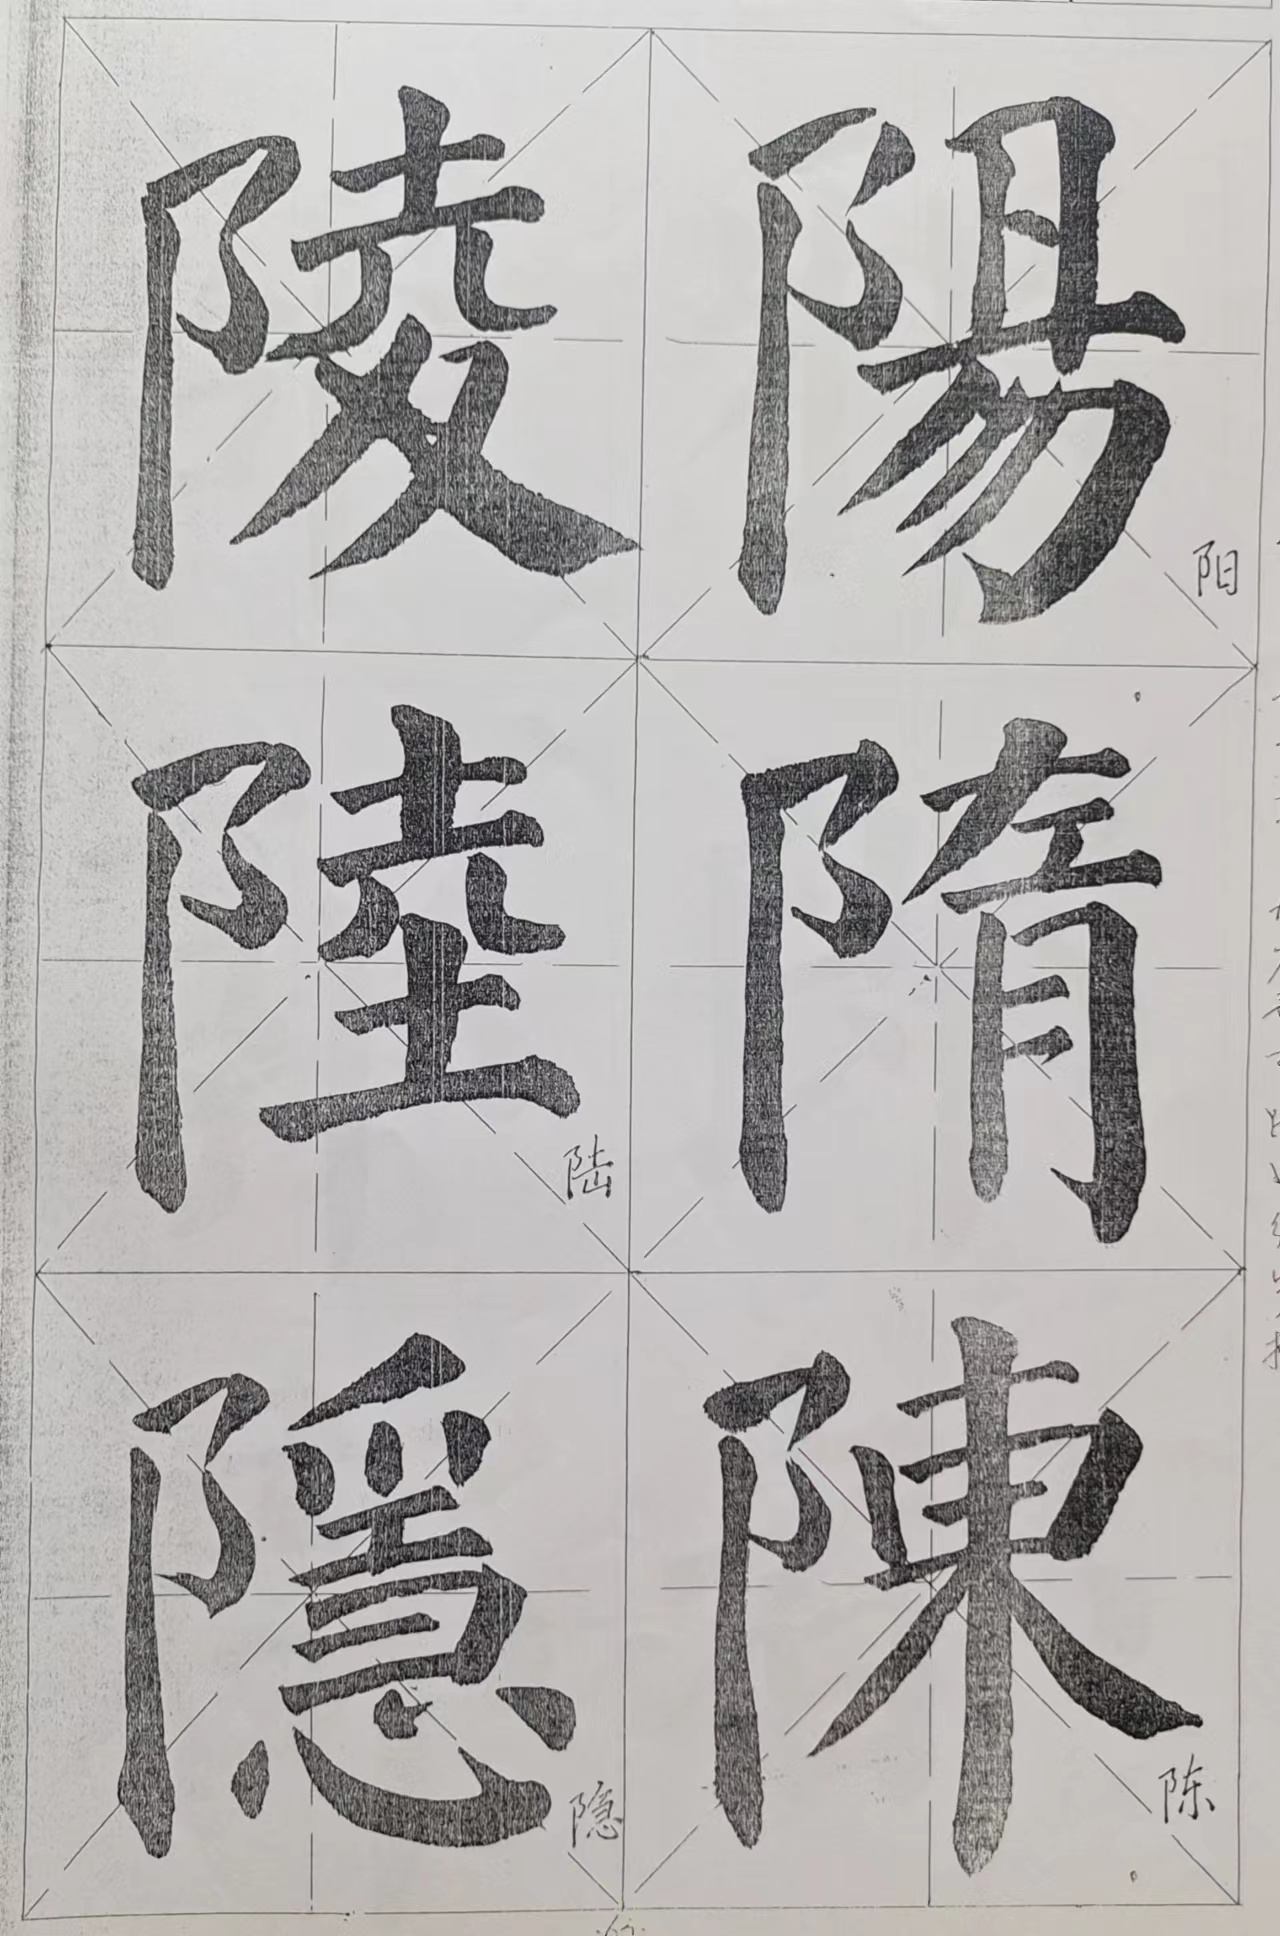 陽
阳
隋
陳
陈
陵
陸
陆
隱
隐